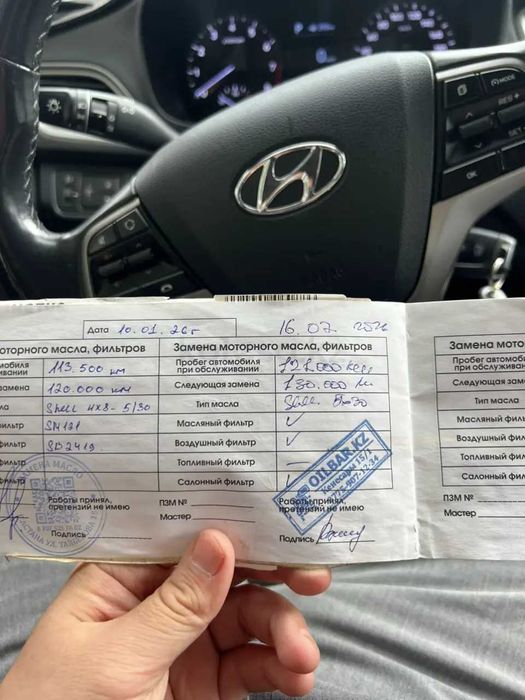 MODE
RES +
SET
OK
Дата 10.01.26г
оторного масла, фильтров
113.500 км
замена 120.000 км
Shell HX8 - 5/30
SM121
SB2419
Работы принял,
претензий не имею
Подпись
ЗАМЕНА МАСЛО
16.07 2026
Замена моторного масла, фильтров
Пробег автомобиля
при обслуживании 121.000 км
Следующая замена 130.000 км
Тип масла Shell 5w30
Масляный фильтр ✓
Воздушный фильтр ✓
Топливный фильтр —
Салонный фильтр ✓
ПЗМ №
Мастер
Работы принял,
претензий не имею
Подпись
OILBAR.KZ
Кенесары 15/1
Замена мо
Пробег автомобиля
при обслуживании
Следующая замена
Тип масла
Масляный фильтр
Воздушный фильтр
Топливный фи
Салонный ф
ПЗМ №
Мастер